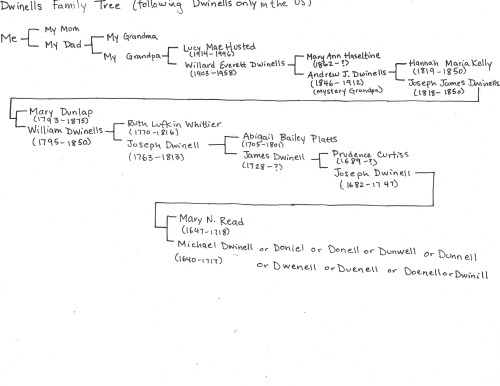 Dwinells Family Tree (following Dwinells only in the US)
Me
My Mom
My Dad
My Grandma
My Grandpa
Lucy Mae Husted
(1914-1996)
Willard Everett Dwinells
(1903-1958)
Mary Ann Haseltine
(1862-?)
Andrew J. Dwinells
(1846-1912)
(mystery Grandpa)
Hannah Maria Kelly
(1819-1850)
Joseph James Dwinells
(1818-1850)
Mary Dunlap
(1793-1875)
William Dwinells
(1795-1850)
Ruth Lufkin Whittier
(1770-1816)
Joseph Dwinell
(1763-1813)
Abigail Bailey Platts
(1705-1801)
James Dwinell
(1728-?)
Prudence Curtiss
(1689-?)
Joseph Dwinell
(1682-1747)
Mary N. Read
(1647-1718)
Michael Dwinell or Doniel or Donell or Dunwell or Dunnell
(1640-1717)
or Dwenell or Duenell or Doenell or Dwinill